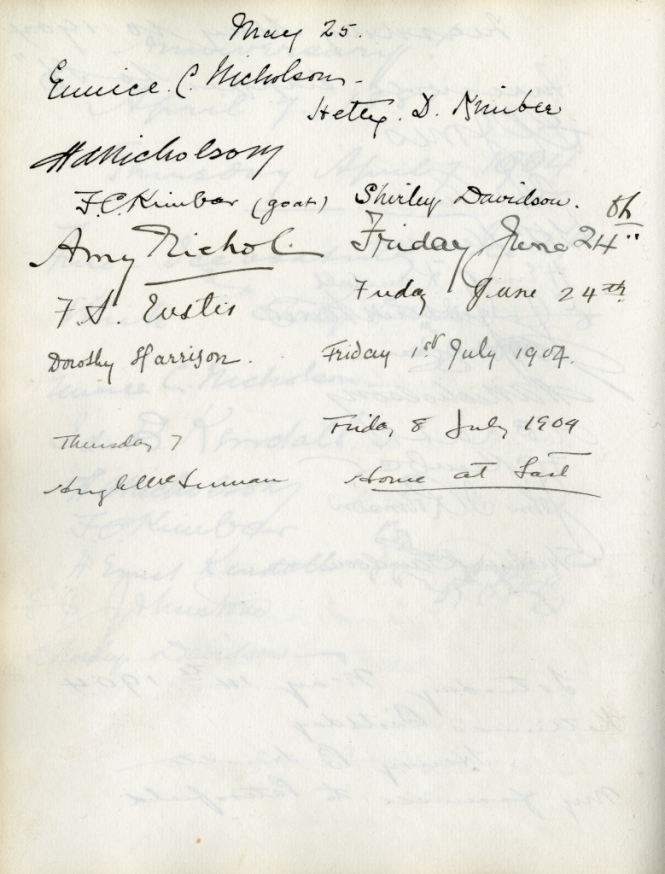 May 25.
Eunice. C. Nicholson.
Hetty. D. Kimber
H A Nicholson
F.C. Kimber (goat) Shirley Davidson.
Amy Nichol. Friday June 24th
F. S. Eustis Friday June 24th
Dorothy Harrison. Friday 1st July 1904.
Thursday 7 Friday 8 July 1904
Hugh McLennan Home at Last